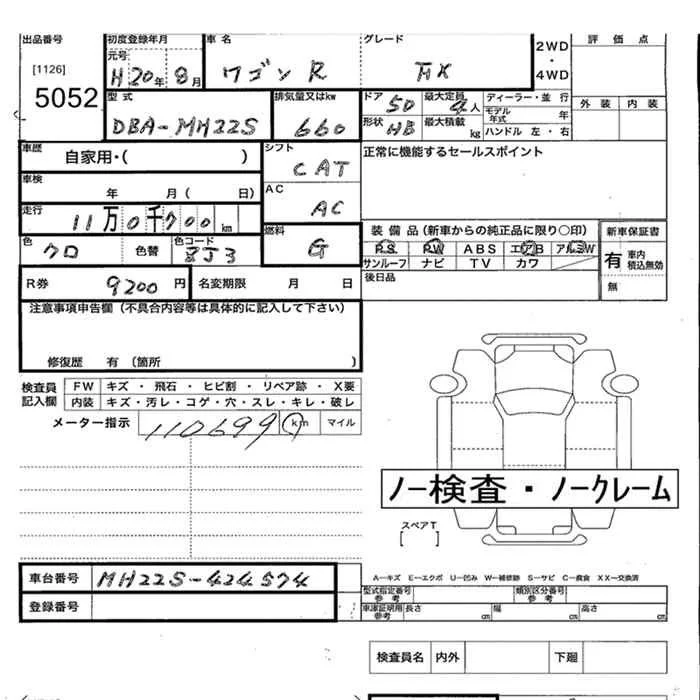 出品番号 初度登録年月 車名 グレード 2WD・4WD 評価点
[1126] 元号 H20年8月 ワゴンR
5052 外装 内装
型式 排気量又はkw ドア 50 最大定員 4人 ディーラー・並行
モデル年式 年
DBA-MH22S 660 形状 HB 最大積載 kg ハンドル 左・右
車歴 自家用・( ) シフト CAT 正常に機能するセールスポイント
車検 年 月( 日) AC AC
走行 11万0千700km 燃料 G 装備品(新車からの純正品に限り○印) 新車保証書
色 クロ 色替 色コード ZJ3 PS PW ABS エアB アルミW 有 車内積込無効
サンルーフ ナビ TV カワ
R券 9200円 名変期限 月 日 後日品 無
注意事項申告欄(不具合内容等は具体的に記入して下さい)
修復歴 有(箇所 )
検査員記入欄 FW キズ・飛石・ヒビ割・リペア跡・X要
内装 キズ・汚レ・コゲ・穴・スレ・キレ・破レ
メーター指示 110699 km マイル
ノー検査・ノークレーム
スペアT
[ ]
車台番号 MH22S-424574 A-キズ E-エクボ U-凹み W-補修跡 S-サビ C-腐食 XX-交換済
型式指定番号 参考 類別区分番号 参考
登録番号 車庫証明用 参考 長さ cm 幅 cm 高さ cm
検査員名 内外 下廻